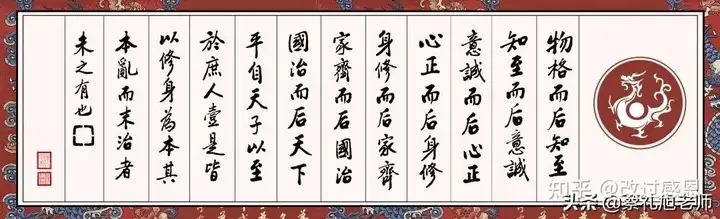 物格而后知至
知至而后意誠
意誠而后心正
心正而后身修
身修而后家齊
家齊而后國治
國治而后天下
平自天子以至
於庶人壹是皆
以修身為本其
本亂而末治者
未之有也
知乎 @改过感恩
头条 @蔡礼旭老师